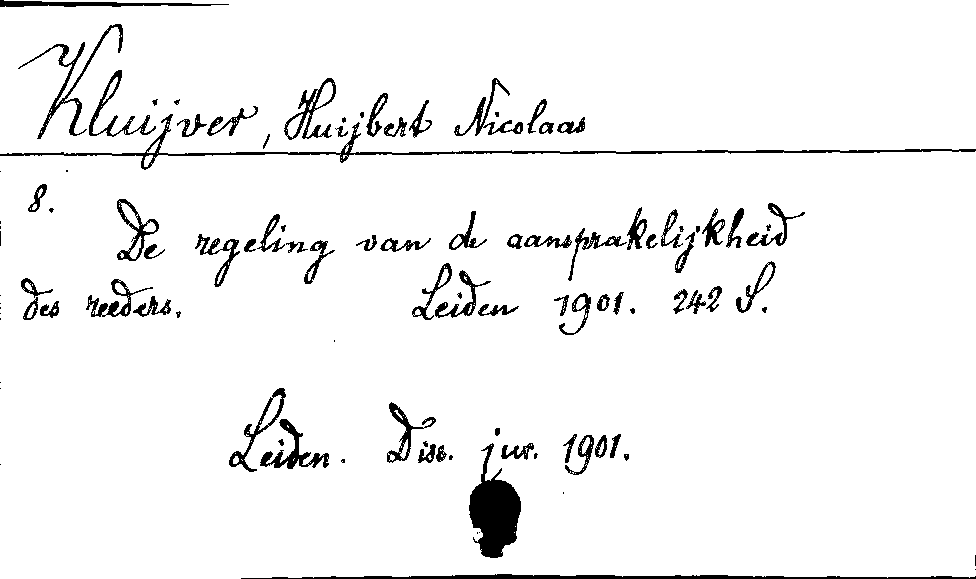 Kluijver, Huijbert Nicolaas
8.
De regeling van de aansprakelijkheid
des reeders. Leiden 1901. 242 S.
Leiden. Diss. jur. 1901.